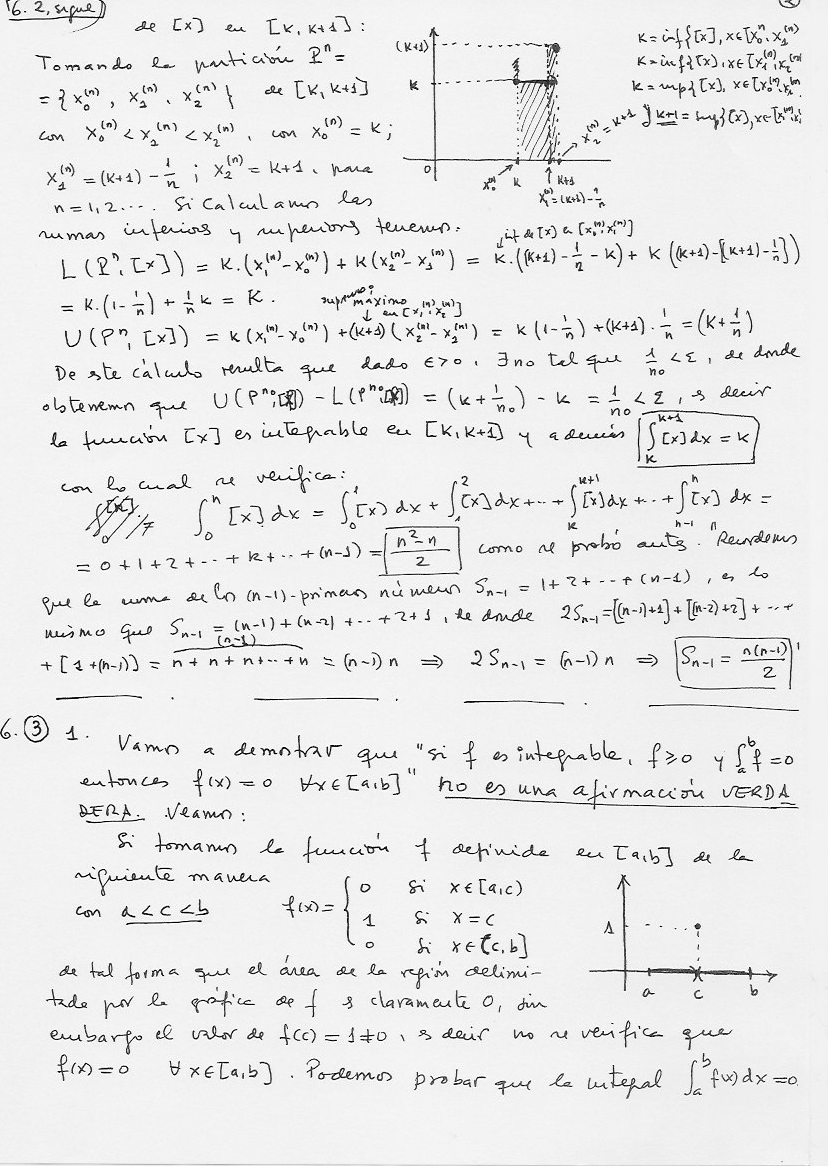 (6.2, sigue)
de [x] en [k, k+1]:
Tomando la partición Pⁿ =
= {x₀⁽ⁿ⁾, x₁⁽ⁿ⁾, x₂⁽ⁿ⁾} de [k, k+1]
con x₀⁽ⁿ⁾ < x₁⁽ⁿ⁾ < x₂⁽ⁿ⁾, con x₀⁽ⁿ⁾ = k;
x₁⁽ⁿ⁾ = (k+1) - 1/n ; x₂⁽ⁿ⁾ = k+1, para
n = 1, 2 .... Si calculamos las
sumas inferiores y superiores tenemos:
(k+1)
k
0
x₀⁽ⁿ⁾
k
k+1
x₁⁽ⁿ⁾ = (k+1) - 1/n
x₂⁽ⁿ⁾ = k+1
k = inf{[x], x∈[x₀ⁿ, x₁⁽ⁿ⁾
k = inf{[x], x∈[x₁⁽ⁿ⁾, x₂⁽ⁿ⁾
k = sup{[x], x∈[x₀⁽ⁿ⁾, x
y k+1 = sup{[x], x∈[x₁⁽ⁿ⁾, x
inf de [x] en [x₀⁽ⁿ⁾, x₁⁽ⁿ⁾]
L(Pⁿ, [x]) = k.(x₁⁽ⁿ⁾ - x₀⁽ⁿ⁾) + k(x₂⁽ⁿ⁾ - x₁⁽ⁿ⁾) = k.((k+1) - 1/n - k) + k((k+1) - [(k+1) - 1/n])
= k.(1 - 1/n) + 1/n k = k.
supremo;
máximo
en [x₁⁽ⁿ⁾, x₂⁽ⁿ⁾]
U(Pⁿ, [x]) = k(x₁⁽ⁿ⁾ - x₀⁽ⁿ⁾) + (k+1)(x₂⁽ⁿ⁾ - x₁⁽ⁿ⁾) = k(1 - 1/n) + (k+1) · 1/n = (k + 1/n)
De este cálculo resulta que dado ε > 0, ∃ n₀ tal que 1/n₀ < ε, de donde
obtenemos que U(Pⁿ⁰, [x]) - L(Pⁿ⁰, [x]) = (k + 1/n₀) - k = 1/n₀ < ε, es decir
la función [x] es integrable en [k, k+1] y además ∫ₖᵏ⁺¹ [x] dx = k
con lo cual se verifica:
∫₀ⁿ [x] dx = ∫₀¹ [x] dx + ∫₁² [x] dx + ... + ∫ₖᵏ⁺¹ [x] dx + ... + ∫ₙ₋₁ⁿ [x] dx =
= 0 + 1 + 2 + ... + k + ... + (n-1) = (n² - n)/2 como se probó antes. "Recordemos
que la suma de los (n-1)-primeros números Sₙ₋₁ = 1 + 2 + ... + (n-1), es lo
mismo que Sₙ₋₁ = (n-1) + (n-2) + ... + 2 + 1, de donde 2Sₙ₋₁ = [(n-1)+1] + [(n-2)+2] + ... +
(n-1)
+ [1 + (n-1)] = n + n + n + ... + n = (n-1) n ⟹ 2Sₙ₋₁ = (n-1) n ⟹ Sₙ₋₁ = n(n-1)/2
6. ③ 1. Vamos a demostrar que "si f es integrable, f ≥ 0 y ∫ₐᵇ f = 0
entonces f(x) = 0 ∀x∈[a,b]" no es una afirmación VERDA
DERA. Veamos:
Si tomamos la función f definida en [a,b] de la
siguiente manera
con a < c < b
f(x) = { 0 si x∈[a,c)
1 si x = c
0 si x∈(c,b]
1
a
c
b
de tal forma que el área de la región delimi-
tada por la gráfica de f es claramente 0, sin
embargo el valor de f(c) = 1 ≠ 0, es decir no se verifica que
f(x) = 0 ∀ x∈[a,b]. Podemos probar que la integral ∫ₐᵇ f(x) dx = 0